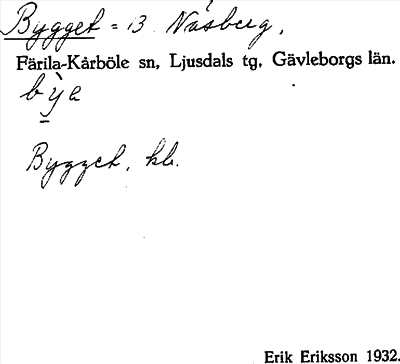 Bygget = B. Näsberg,
Färila-Kårböle sn, Ljusdals tg, Gävleborgs län.
Bygget, hb.
Erik Eriksson 1932.